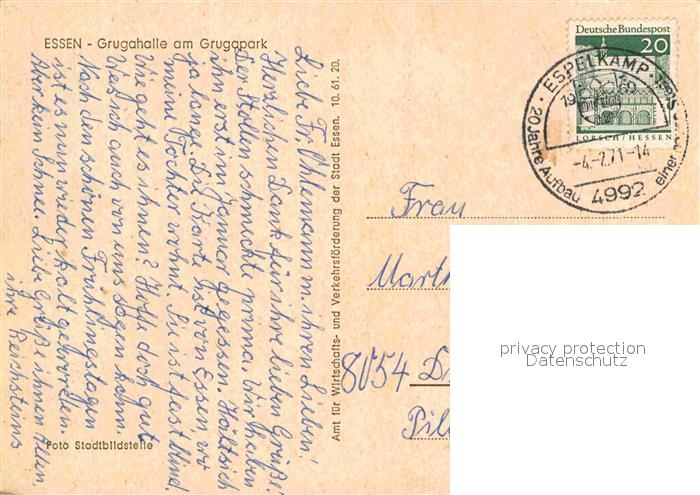 ESSEN - Grugahalle am Grugapark
Liebe Fr. Uhlemann m. ihren Lieben!
Herzlichen Dank für ihre lieben Grüße.
Der Stollen schmeckte prima. Wir haben
ihn erst im Januar gegessen. Hält sich
ja lange. Die Karte ist von Essen wo
meine Tochter wohnt. Sie ist fast blind.
Wie geht es ihnen? Hoffe doch gut
was ich auch von uns sagen kann.
Nach den schönen Frühlingstagen
ist es nun wieder kalt geworden.
Aber kein Schnee. Liebe Grüße ihnen allen,
ihre
Foto Stadtbildstelle
Amt für Wirtschafts- und Verkehrsförderung der Stadt Essen. 10. 61. 20.
Deutsche Bundespost
20
LORSCH / HESSEN
ESPELKAMP
19 69
-4.-2.71-14
20 Jahre Aufbau einer
4992
Frau
Marth
8054 D
Pil
privacy protection
Datenschutz